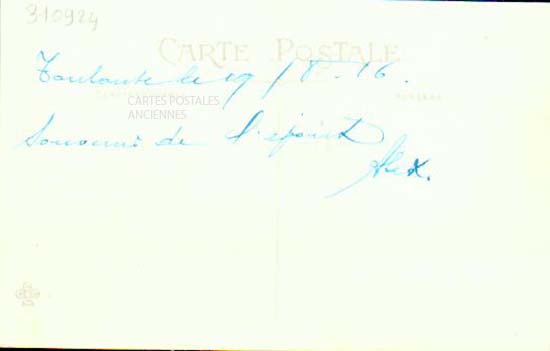 310924
CARTE POSTALE
Toulouse le 19/8-16.
CARTES POSTALES
ANCIENNES
Souvenir de
Alex.